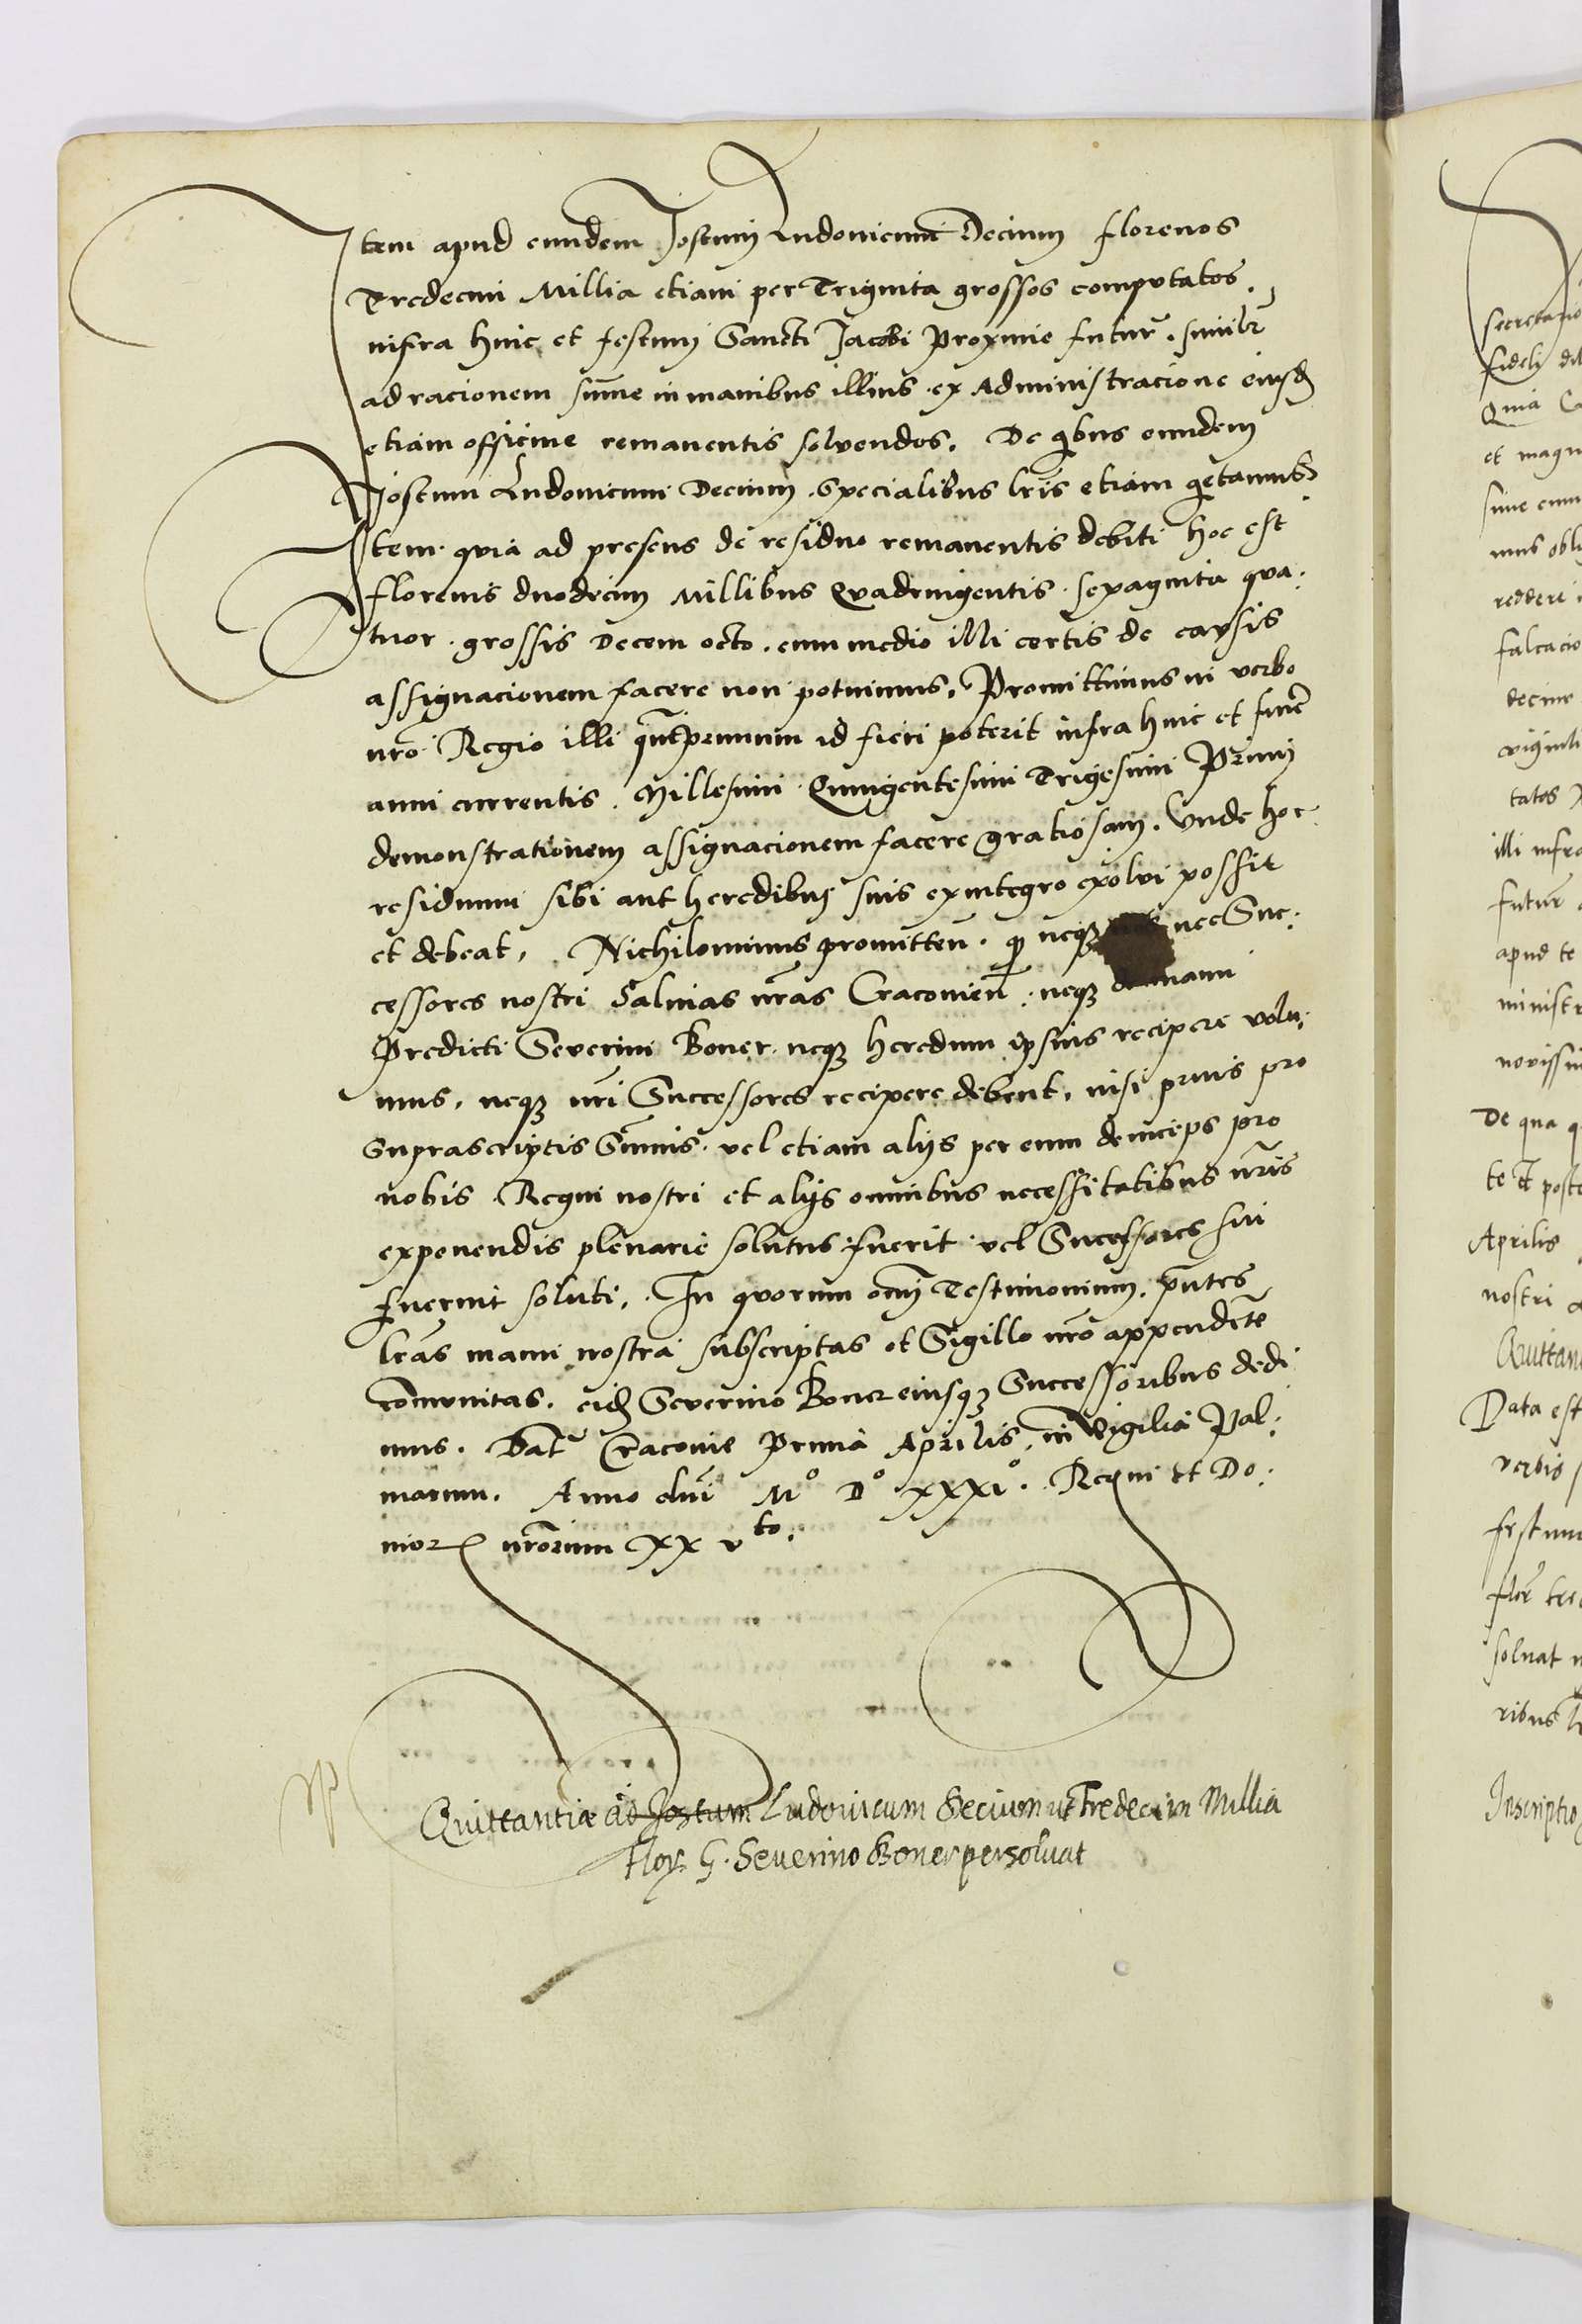 Item apud eundem Jostum Ludovicum Decium florenos
Tredecim Millia etiam per Triginta grossos computatos.
infra hinc et festum Sancti Jacobi Proxime futur. similr
ad racionem sume in manibus illius ex Administracione eiusd
etiam officine remanentis solvendos. De qbus eundem
Jostum Ludovicum Decium. Specialibus lris etiam qetamus
Item quia ad presens de residuo remanentis debiti hoc est
florenis duodecim Millibus Quadringentis sexaginta qua:
tuor. grossis Decem octo. cum medio illi certis de causis
assignacionem facere non potuimus. Promittimus in verbo
nro Regio illi qntprimum id fieri poterit infra hinc et fine
anni currentis. Millesimi Quingentesimi Trigesimi Primi
demonstrationem assignacionem facere gratiosam. Unde hoc
residuum sibi aut heredibus suis ex integro exolvi possit
et debeat. Nichilominus promitten. q neqz nec Suc:
cessores nostri Salinas nras Cracovien. neqz de manu
Predicti Severini Boner. neqz heredum ipsius recipere volu:
mus. neqz nri Successores recipere debent. nisi prius pro
Suprascriptis Summis. vel etiam aliis per eum deinceps pro
nobis Regni nostri et aliis omnibus necessitatibus nris
exponendis plenarie solutus fuerit vel Successores sui
fuerint soluti. In quorum omi Testimonium. pntes
lras manu nostra subscriptas et Sigillo nro appendente
comunitas. eid Severino Boner eiusqz Successoribus dedi
mus. Dat Cracovie Prima Aprilis. in Vigilia Pal:
marum. Anno dni Mo Do xxxio. Regni et Do:
mior nrorum xx vto.
Quittantia ad Jostum Ludovicum Decium ut Tredecim Millia
flor G. Severino Boner persolvat
secretario
fideli dil
Quia
et magn
sive
nus obli
reddere
falcacio
decime
viginti
tatos
illi infra
futur
apud te
ministr
novissi
De qua q
te et poste
Aprilis
nostri
Quittan
Data est
verbis
festum
flor tre
solvat
ribus
Inscriptio